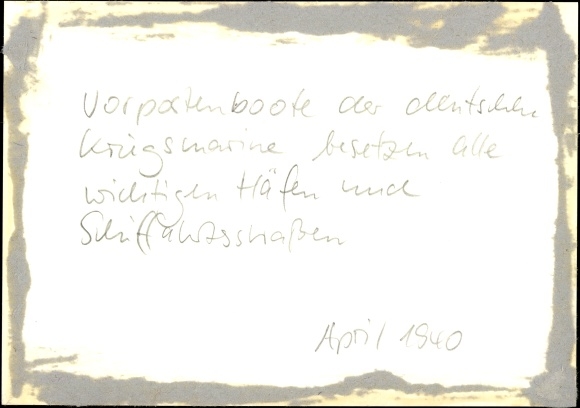 Vorpostenboote der deutschen
Kriegsmarine besetzen alle
wichtigen Häfen und
Schiffahrtsstraßen
April 1940